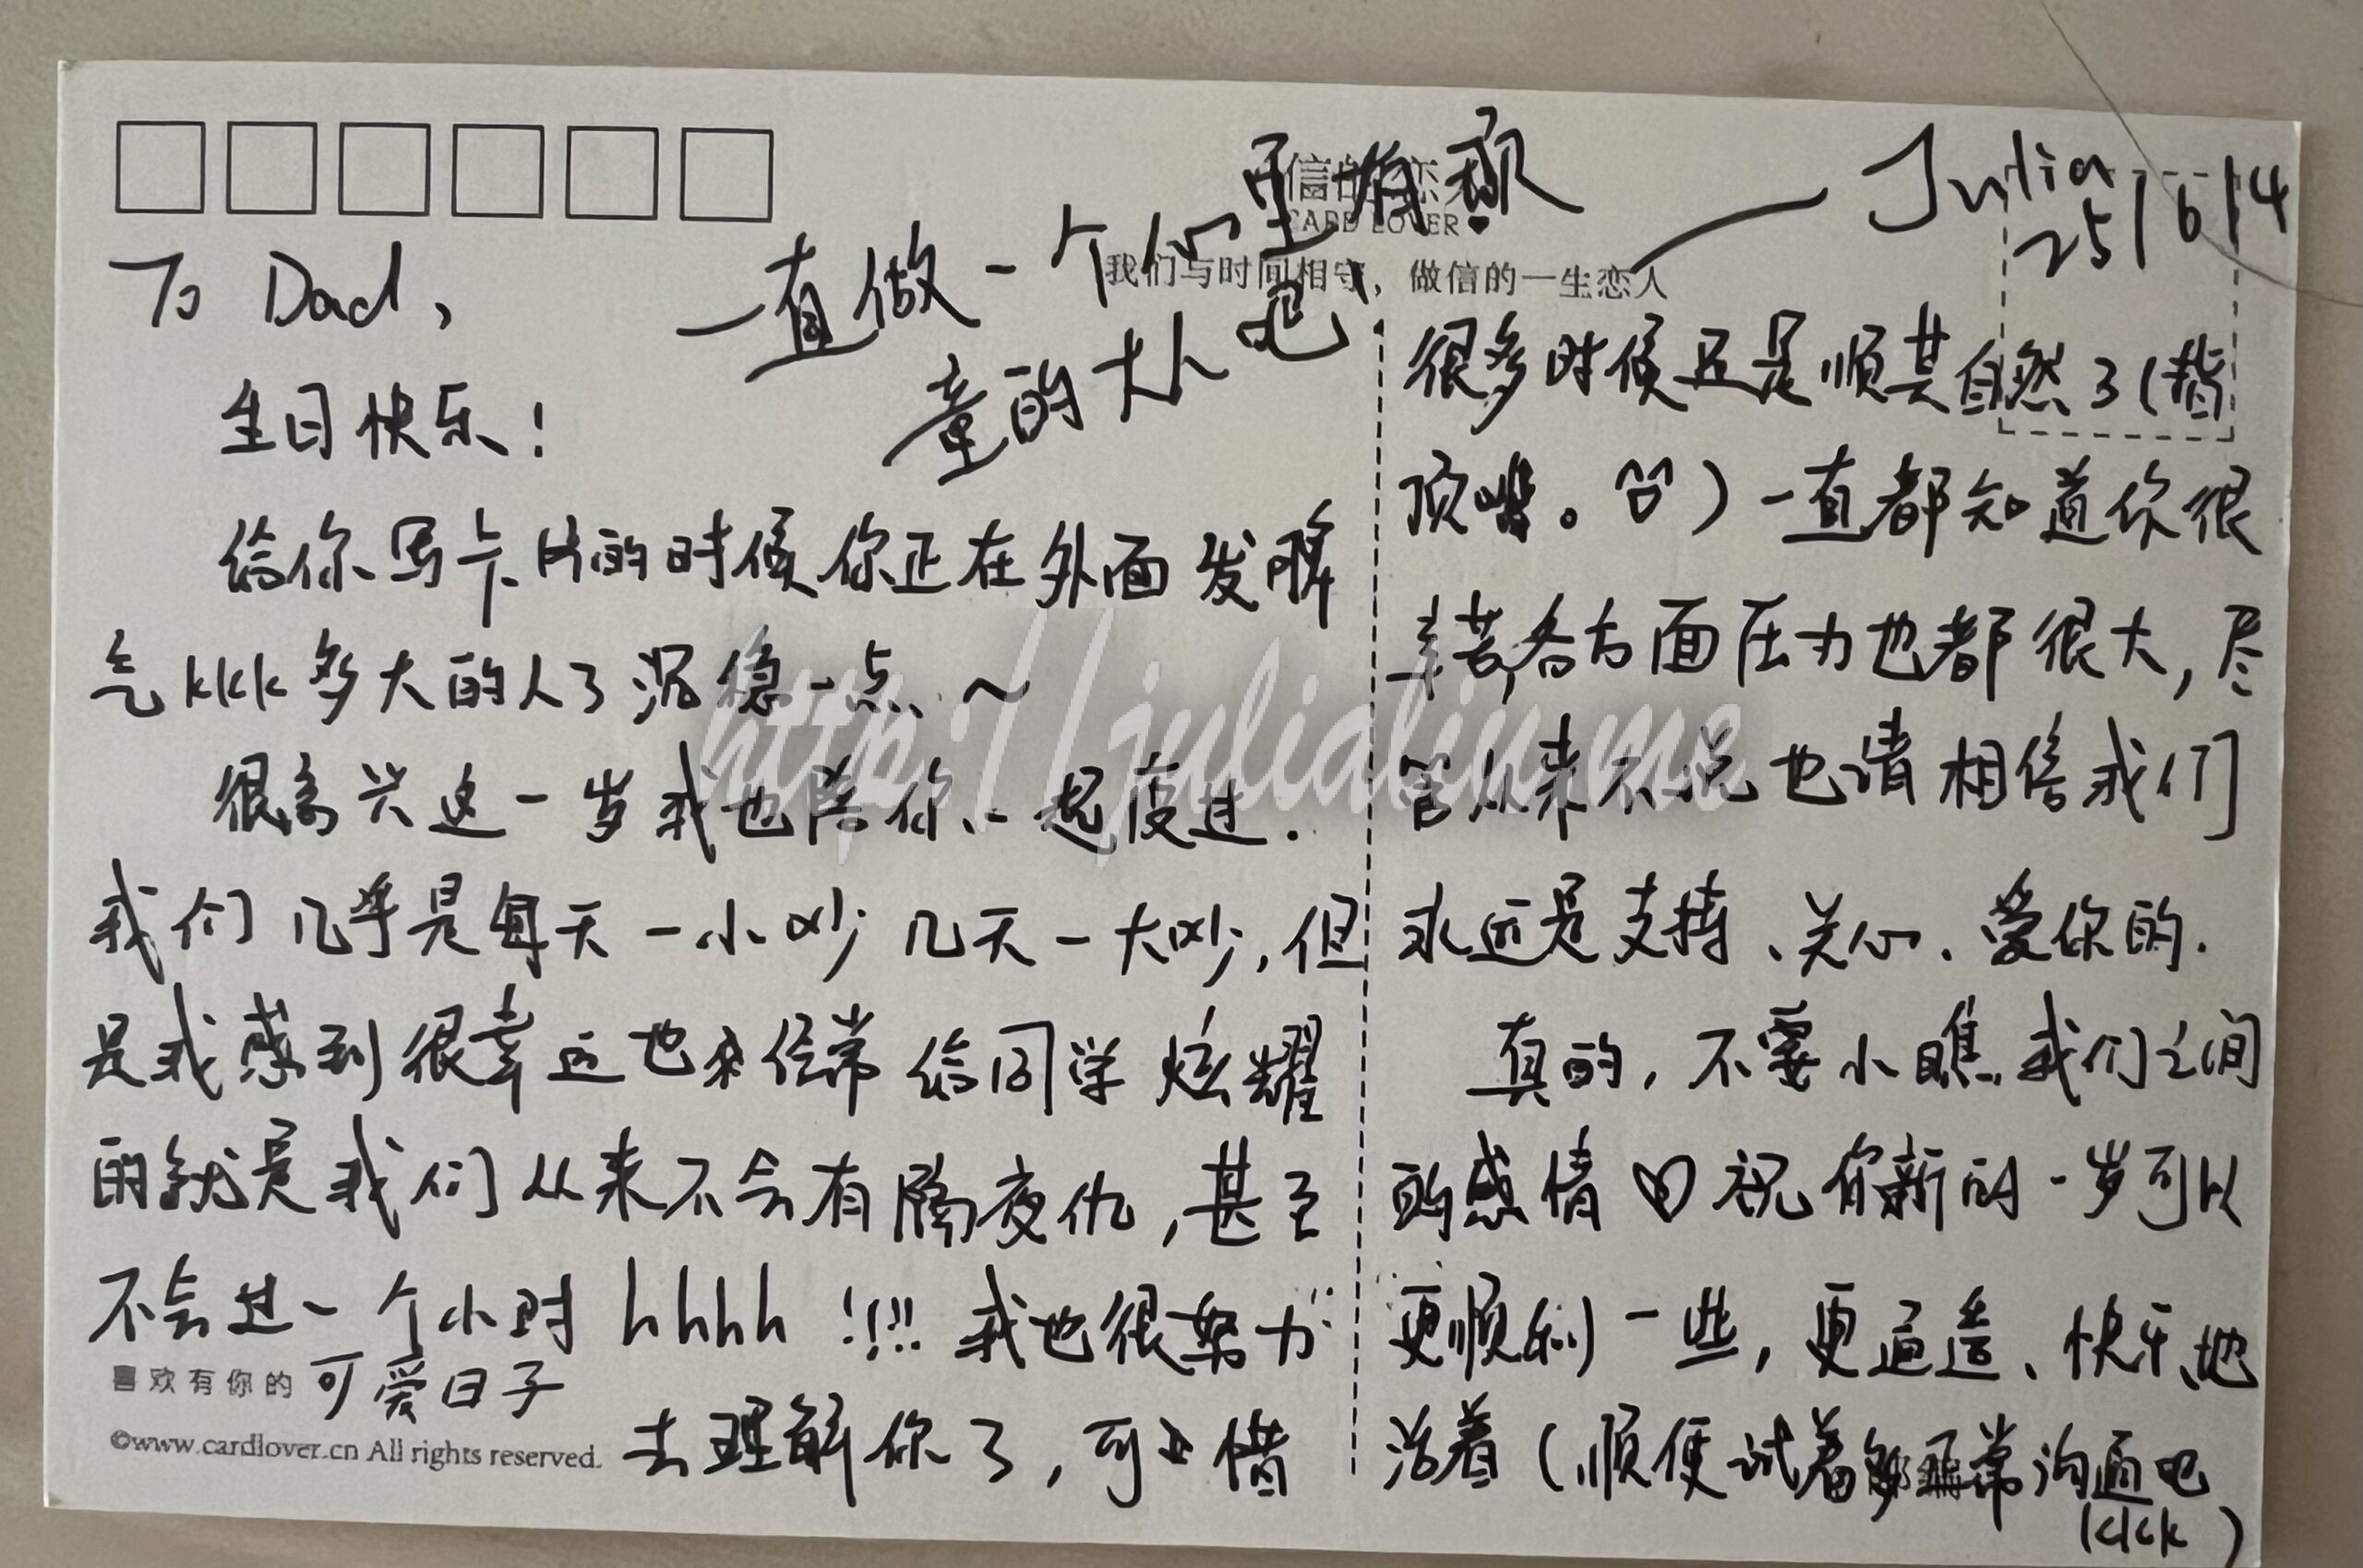 To Dad,
生日快乐!
给你写卡片的时候你正在外面发脾
气kkk多大的人了沉稳一点~
很高兴这一岁我也陪你一起度过.
我们几乎是每天一小吵几天一大吵,但
是我感到很幸运也来经常给同学炫耀
的就是我们从来不会有隔夜仇,甚至
不会过一个小时hhhh!!!! 我也很努力
去理解你了,可惜
很多时候还是顺其自然了(指
顶嘴。)一直都知道你很
辛苦,各方面压力也都很大,尽
管从来不说也请相信我们
永远是支持、关心、爱你的.
真的,不要小瞧我们之间
的感情♡祝你新的一岁可以
更顺利一些,更逍遥、快乐地
活着(顺便试着正常沟通吧
kkk)
一直做一个心里有
童的大小吧
—Julia
25/6/4
信的恋人
CARD LOVER
我们与时间相守,做信的一生恋人
喜欢有你的可爱日子
©www.cardlover.cn All rights reserved.
http://julialiu.me